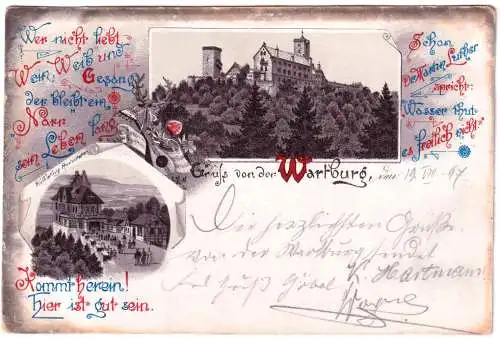 Wer nicht liebt
Wein, Weib und
Gesang
der bleibt ein
Narr
sein Leben lang
Schon
Dr. Martin Luther
spricht:
Wasser thut
es freilich nicht
Gruss von der Wartburg, den 19. 97
Die herzlichsten Grüße
von der Wartburg sendet
Hartmann
Kommt herein!
Hier ist gut sein.